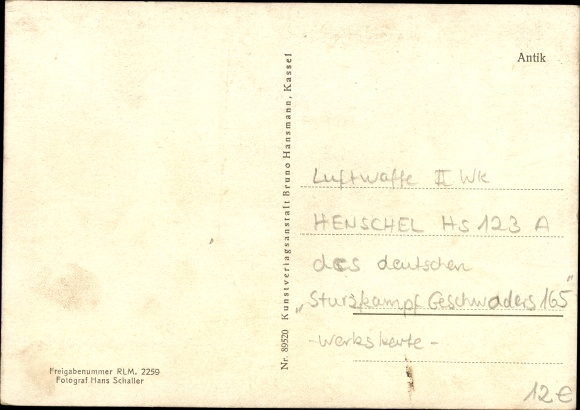 Antik
Nr. 89520 Kunstverlagsanstaft Bruno Hansmann, Kassel
Luftwaffe II WK
HENSCHEL Hs 123 A
des deutschen
„Sturzkampf Geschwaders 165"
- Werkskarte -
Freigabenummer RLM. 2259
Fotograf Hans Schaller
12€